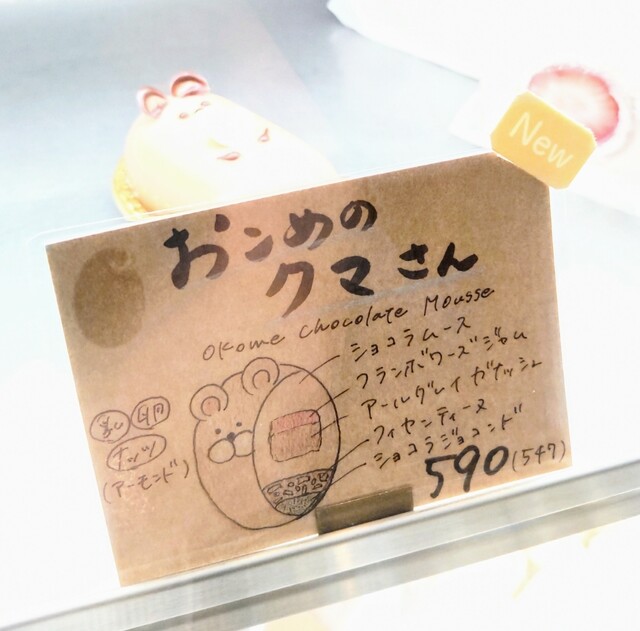 New
おこめの
クマさん
Okome chocolate Mousse
ショコラムース
フランボワーズジャム
アールグレイガナッシュ
フィヤンティーヌ
ショコラジョコンド
乳 卵
ナッツ
(アーモンド)
590(547)